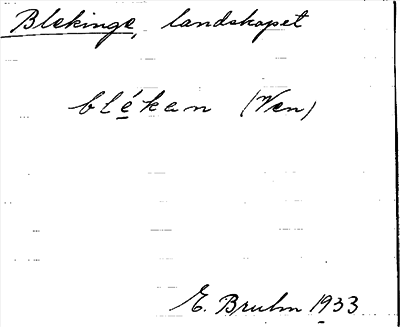 Blekinge, landskapet
blékan (Ven)
E. Bruhn 1933